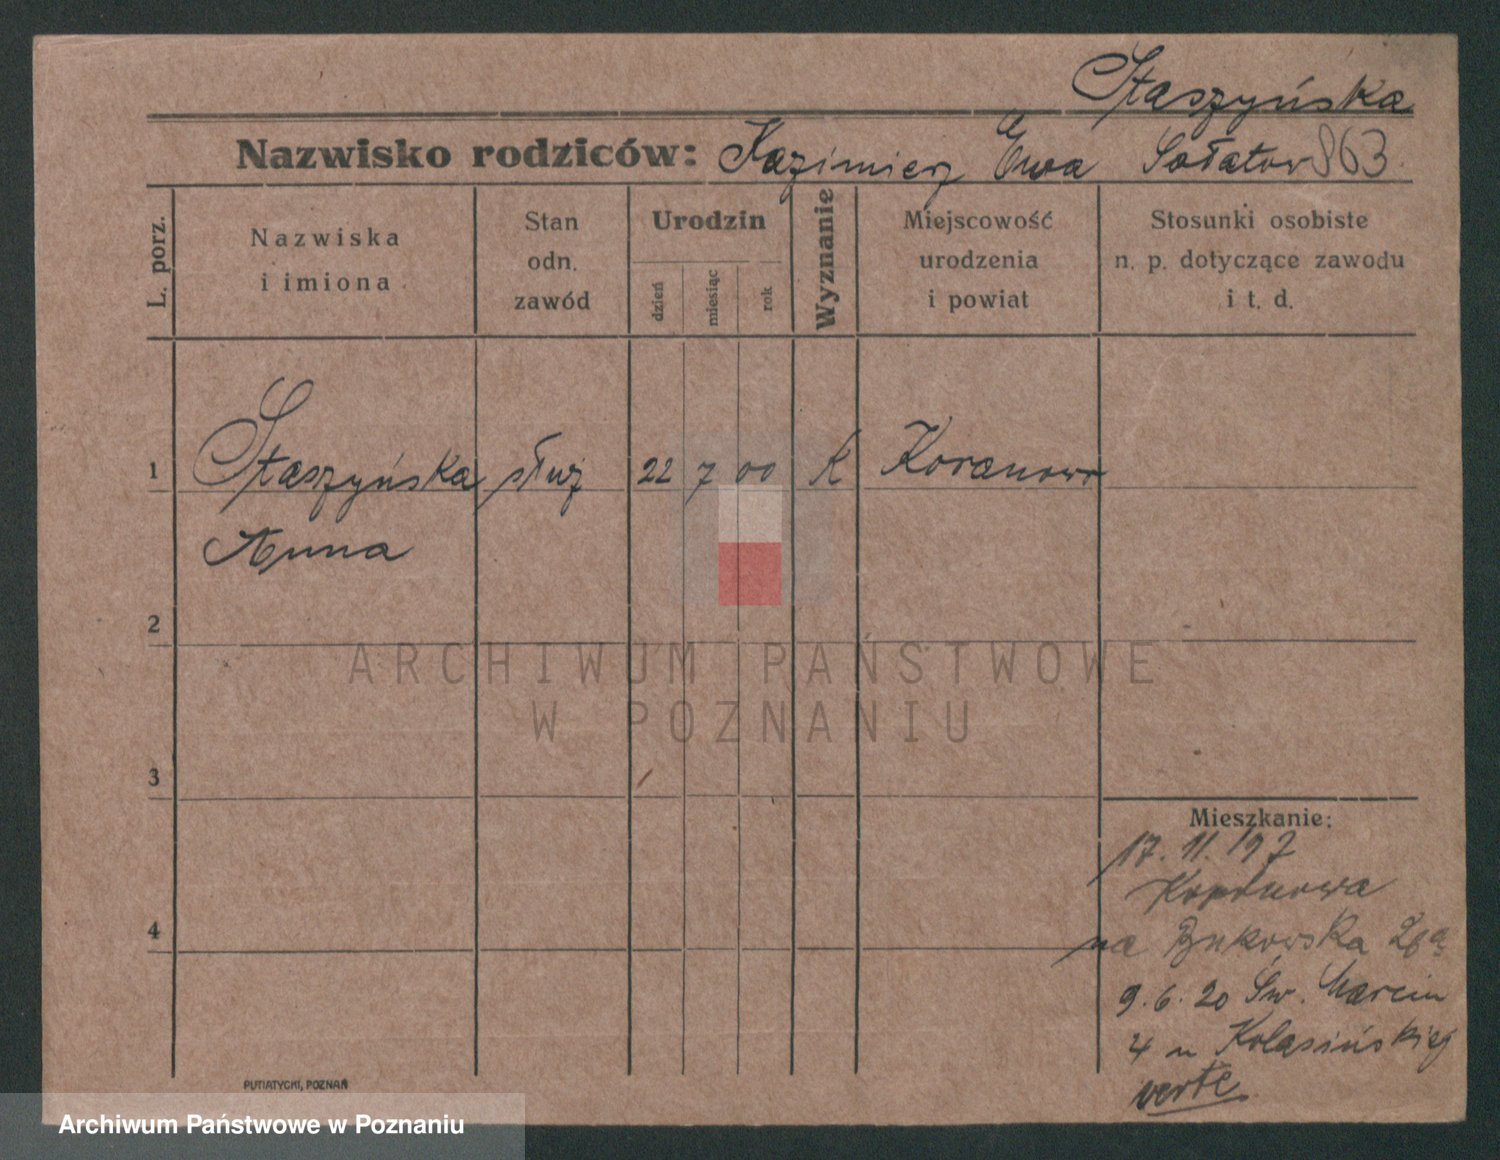 Staszyńska
Nazwisko rodziców: Kazimierz Ewa Sałatow 863
L. porz.
Nazwiska
i imiona
Stan
odn.
zawód
Urodzin
dzień
miesiąc
rok
Wyznanie
Miejscowość
urodzenia
i powiat
Stosunki osobiste
n. p. dotyczące zawodu
i t. d.
1 Staszyńska służ 22 7 00 K Koranowo
Anna
2
3
4
Mieszkanie:
17. 11. 197
na Bukowska
9. 6. 20 Św. Marcin
4 u Kolasińskiej
verte
PUTIATYCKI, POZNAŃ
ARCHIWUM PAŃSTWOWE
W POZNANIU
Archiwum Państwowe w Poznaniu